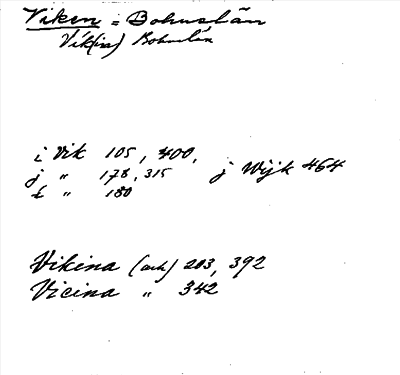 Viken = Bohuslän
Vik(in) Bohuslän
i Vik 105, 400,
j " 178, 315 j Wijk 464
£ " 180
Vikina (ack) 203, 392
Vicina " 342